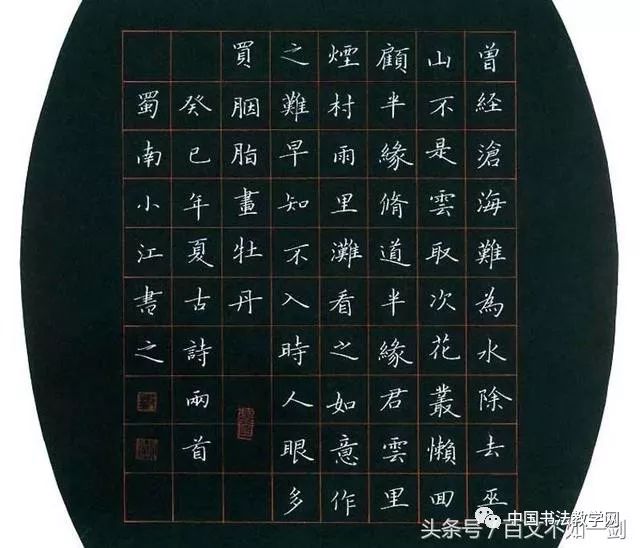 曾經滄海難為水除去巫
山不是雲取次花叢懶回
顧半緣脩道半緣君雲里
煙村雨里灘看之如意作
之難早知不入時人眼多
買胭脂畫牡丹
癸巳年夏古詩兩首
蜀南小江書之
中国书法教学网
头条号 /